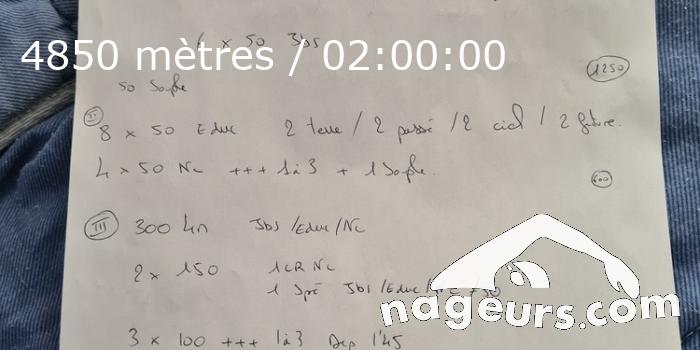 4850 mètres / 02:00:00
4 x 50 Jbs
1250
50 Souple
II
8 x 50 Educ 2 terre / 2 passé / 2 ciel / 2
4 x 50 Nc +++ 1 à 3 + 1 Souple.
600
III 300 4n Jbs / Educ / NC
2 x 150 1 CR NC
1 Spé Jbs / Educ /
nageurs.com
3 x 100 +++ 1 à 3 Dep 1'45